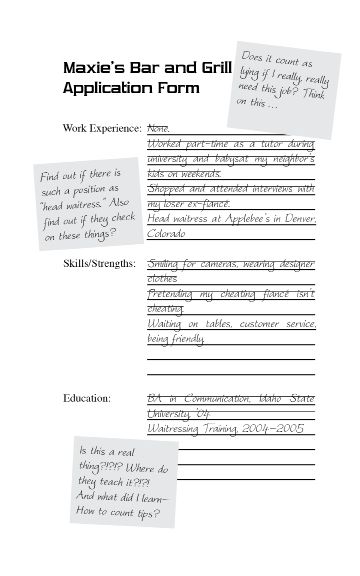 Maxie's Bar and Grill
Application Form
Does it count as
lying if I really, really
need this job? Think
on this ...
Work Experience: None.
Worked part-time as a tutor during
university and babysat my neighbor's
kids on weekends.
Shopped and attended interviews with
my loser ex-fiancé.
Head waitress at Applebee's in Denver,
Colorado
Find out if there is
such a position as
"head waitress." Also
find out if they check
on these things?
Skills/Strengths: Smiling for cameras, wearing designer
clothes
Pretending my cheating fiancé isn't
cheating.
Waiting on tables, customer service,
being friendly
Education: BA in Communication, Idaho State
University, '04
Waitressing Training, 2004–2005
Is this a real
thing?!?!? Where do
they teach it?!?!
And what did I learn—
How to count tips?